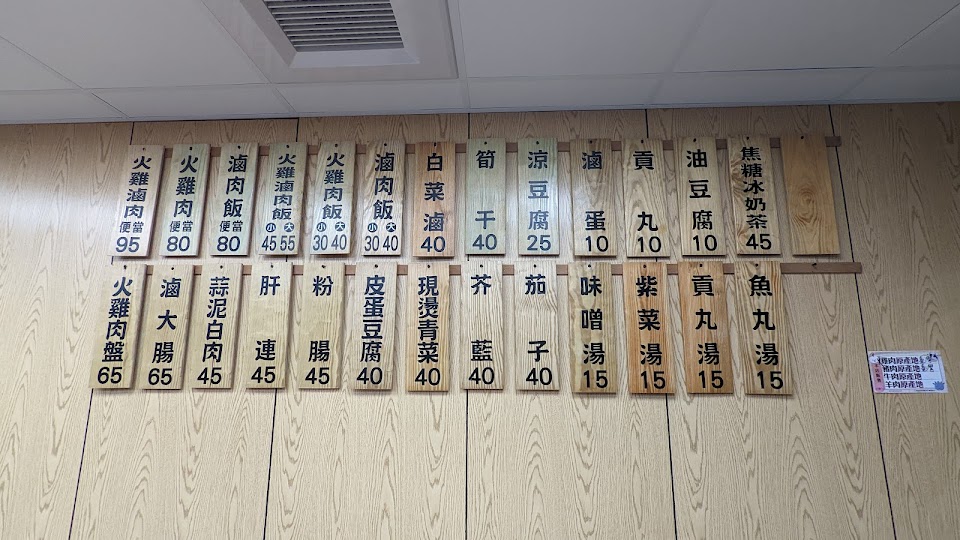 火雞滷肉便當95
火雞肉便當80
滷肉飯便當80
火雞滷肉飯小45大55
火雞肉飯小30大40
滷肉飯小30大40
白菜滷40
筍干40
涼豆腐25
滷蛋10
貢丸10
油豆腐10
焦糖冰奶茶45
火雞肉盤65
滷大腸65
蒜泥白肉45
肝連45
粉腸45
皮蛋豆腐40
現燙青菜40
芥藍40
茄子40
味噌湯15
紫菜湯15
貢丸湯15
魚丸湯15
雞肉原產地
豬肉原產地
牛肉原產地
羊肉原產地